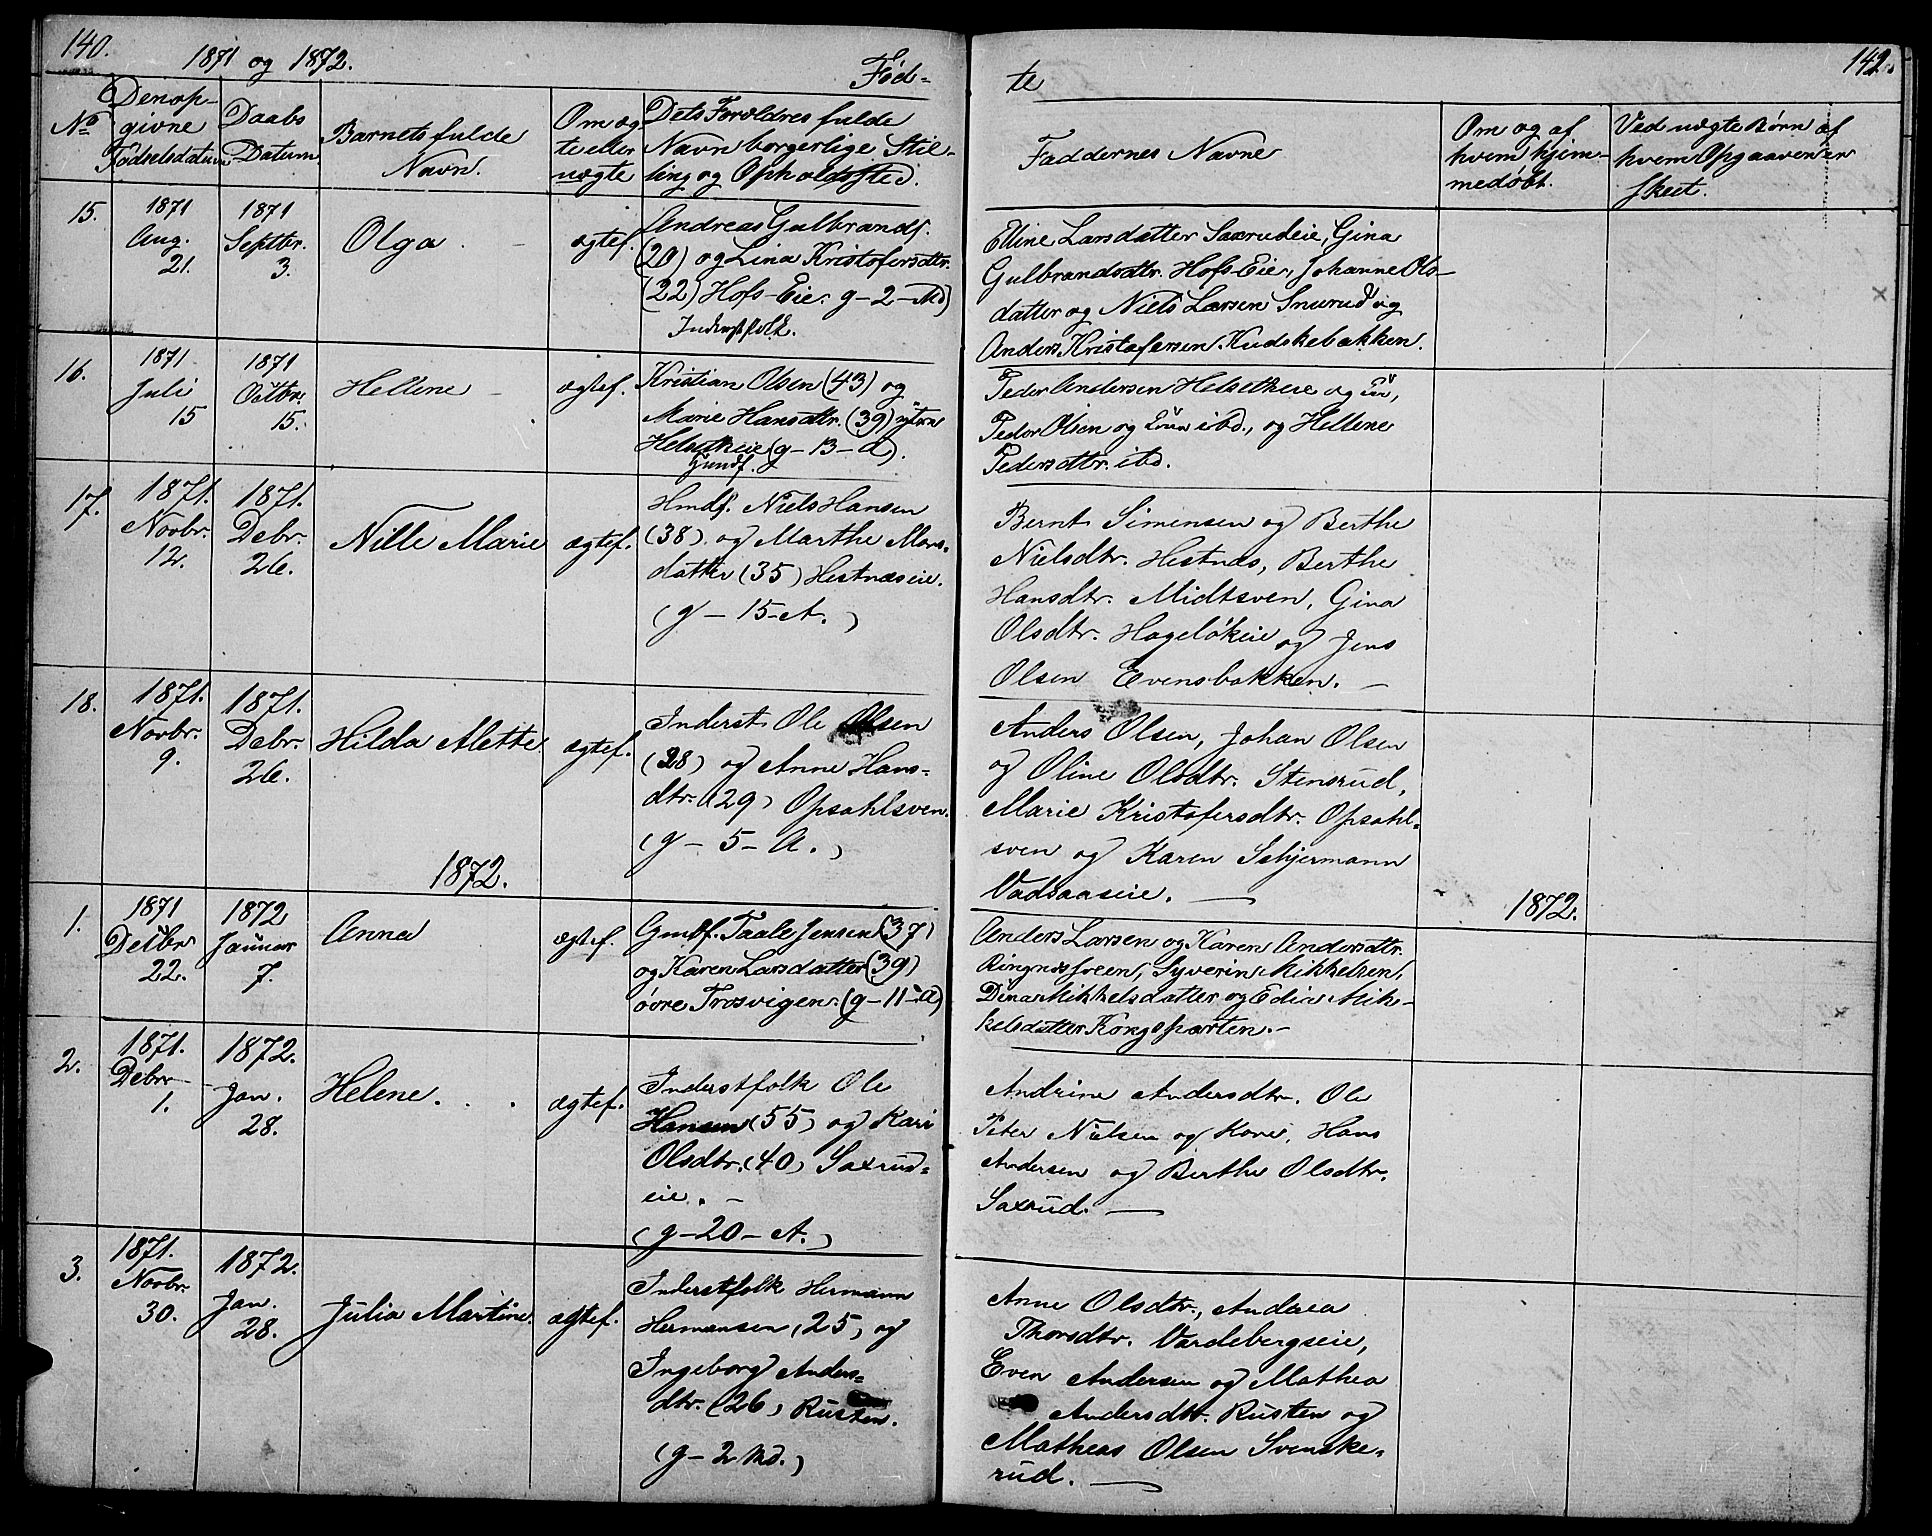 140.
1871 og 1872.
Fød-
te
142.
No
Den op-
givne
Fødselsdatum
Daabs
Datum
Barnets fulde
Navn.
Om æg-
te eller
uægte
Dets Forældres fulde
Navn borgerlige Stil-
ling og Opholdssted.
Faddernes Navne
Om og af
hvem hjem-
medøbt.
Ved uægte Børn af
hvem Opgaaven er
skeet.
15.
1871
Aug.
21.
1871
Septbr.
3.
Olga
ægtef.
Andreas Gulbrands.
(20) og Lina Kristofersdtr.
(22) Hofs-Eie. g-2-Md)
Inderstfolk.
Elline Larsdatter Saxrudeie, Gina
Gulbrandsdtr. Hofs-Eie, Johanne Ols-
datter og Niels Larsen Snurud og
Anders Kristofersen Kudskebakken.
16.
1871
Juli
15
1871
Octbr.
15.
Hellene
ægtef.
Kristian Olsen (43) og
Marie Hansdtr. (39)
(g-13-A).
Peder Andersen Helsetheie og
Peder Olsen og ibd., og Hellene
Pedersdtr. ibd.
17.
1871.
Novbr.
12.
1871.
Debr.
26.
Nille Marie
ægtef.
Hmdf. Niels Hansen
(38). og Marthe Mons-
datter (35) Hestnæseie.
(g-15-A.)
Bernt Simensen og Berthe
Nielsdtr. Hestnæs, Berthe
Hansdtr. Midtsven, Gina
Olsdtr. Hageløkeie og Jens
Olsen Evensbakken. -
18.
1871.
Novbr.
9.
1871.
Debr.
26.
Hilda Alette
ægtef.
Inderst Ole Olsen
(28) og Anne Hans-
dtr. (29) Opsahlsven.
(g - 5 - A.)
Anders Olsen, Johan Olsen
og Oline Olsdtr. Stensrud,
Marie Kristofersdtr. Opsahl-
sven og Karen Schjermann
Vadsaaseie. -
1872.
1872.
1.
1871
Decbr
22.
1872
Januar
7.
Anna
ægtef.
Gmdf. Taale Jensen (37)
og Karen Larsdatter (39)
øvre Trosvigen. (g-11-A)
Anders Larsen og Karen Andersdtr.
Ringnæssveen, Syverin Mikkelsen,
Dina Mikkelsdatter og Edia Mik-
kelsdatter Kongsparten. -
2.
1871.
Debr
1.
1872.
Jan.
28.
Helene.
ægtef.
Inderstfolk Ole
Hansen (55) og Kari
Olsdtr. (40) Saxrud-
eie. -
(g-20-A.)
Andrine Andersdtr. Ole
Peter Nielsen og Kone, Hans
Andersen og Berthe Olsdtr.
Saxrud. -
3.
1871.
Novbr.
30.
1872.
Jan.
28.
Julia Martine.
ægtef.
Inderstfolk Hermann
Hermansen (25) og
Ingeborg Anders-
dtr. (26) Rusten.
(g-2 Md.)
Anne Olsdtr., Andrea
Thorsdtr. Vardebergseie,
Even Andersen og Mathea
Andersdtr. Rusten og
Matheas Olsen Svenske-
rud. -